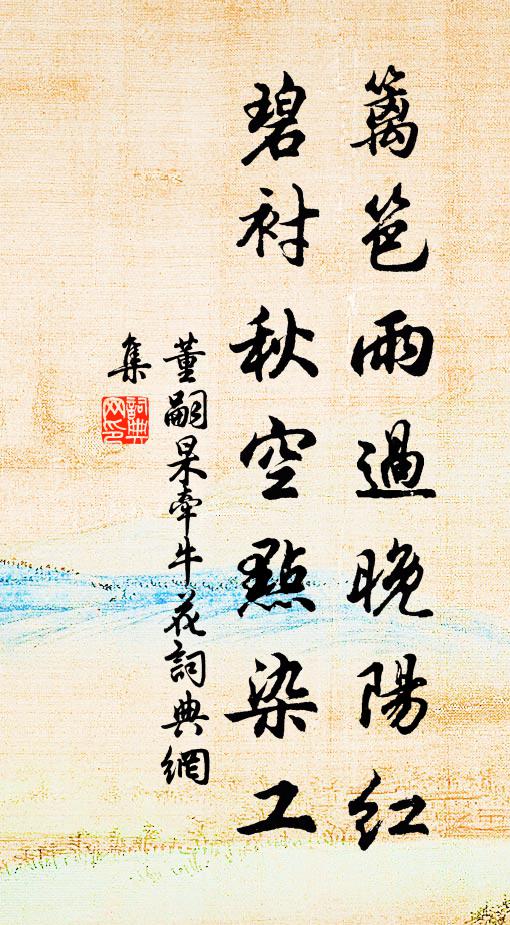 籬笆雨過晚陽紅
碧衬秋空點染工
董嗣杲牽牛花詞典網
集
詞典
网印